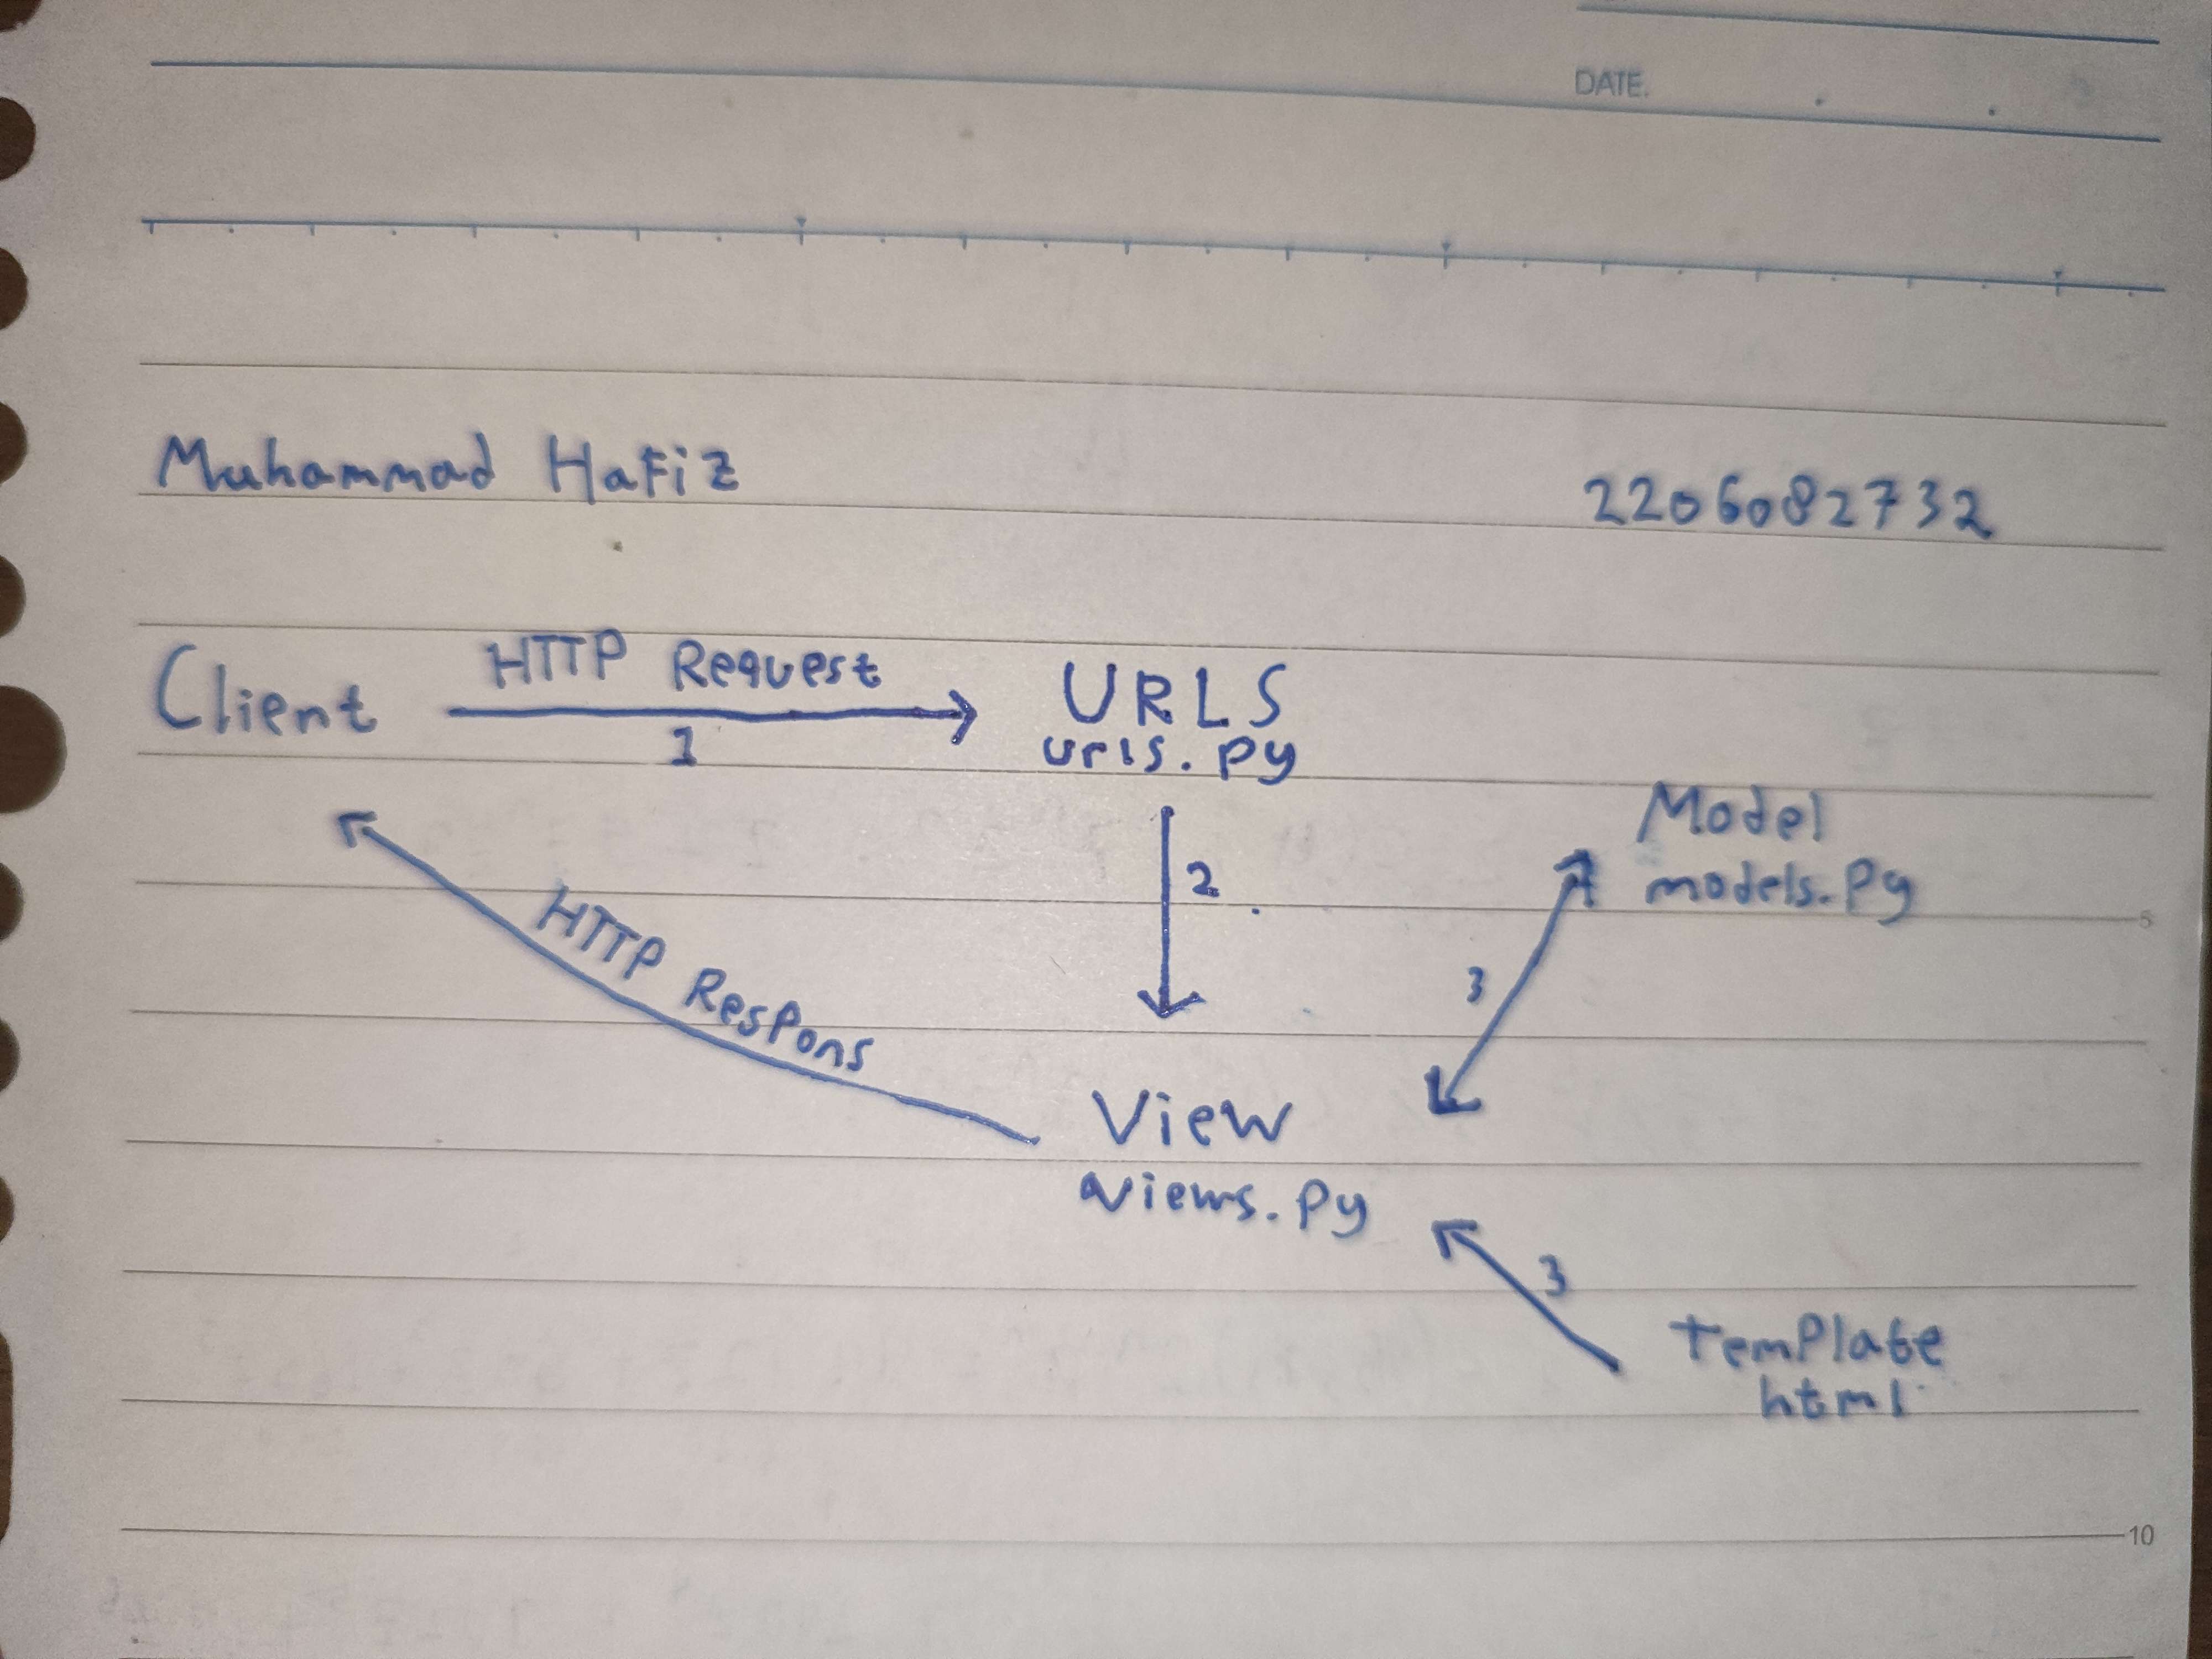 DATE.
Muhammad Hafiz 2206082732
Client HTTP Request URLS
1 urls.py
Model
models.Py
2.
5
HTTP Respons
3
View
views.Py
3
temPlate
html
10